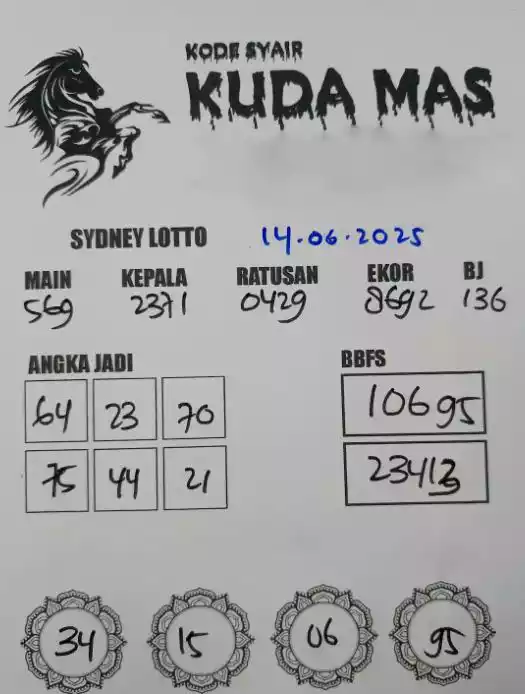 KODE SYAIR
KUDA MAS
SYDNEY LOTTO 14.06.2025
MAIN KEPALA RATUSAN EKOR BJ
569 2371 0429 8692 136
ANGKA JADI BBFS
64 23 70 10695
75 44 21 23413
34 15 06 95